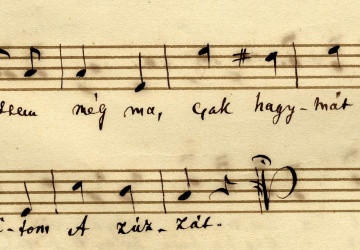 még ma, csak hagy-mát
tom A zúz-zát.